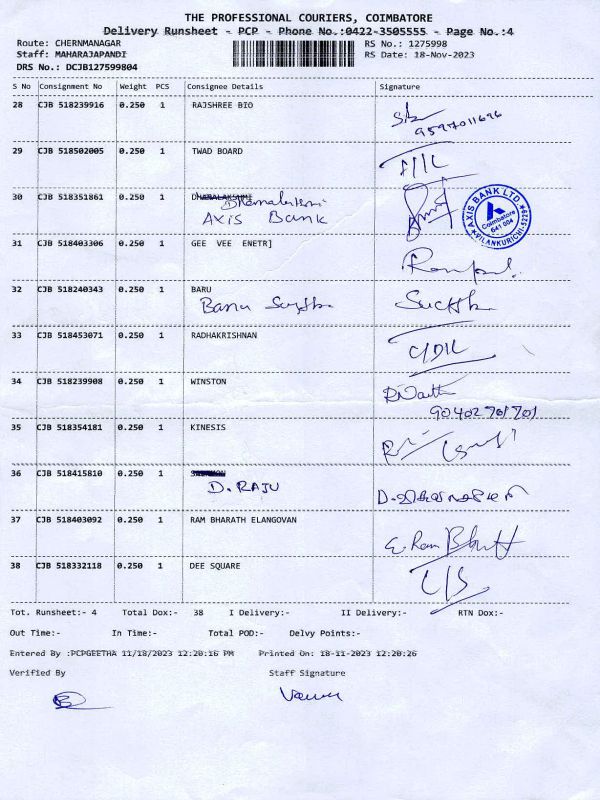 THE PROFESSIONAL COURIERS, COIMBATORE
Delivery Runsheet - PCP - Phone No.:0422-3505555 - Page No.:4
Route: CHERNMANAGAR
RS No.: 1275998
Staff: MAHARAJAPANDI
RS Date: 18-Nov-2023
DRS No.: DCJB127599804
S No Consignment No Weight PCS Consignee Details Signature
28 CJB 518239916 0.250 1 RAJSHREE BIO
9597011696
29 CJB 518502005 0.250 1 TWAD BOARD
30 CJB 518351861 0.250 1 DHANALAKSHMI
AXIS Bank
AXIS BANK LTD
Coimbatore
641 004
31 CJB 518403306 0.250 1 GEE VEE ENETR]
32 CJB 518240343 0.250 1 BARU
33 CJB 518453071 0.250 1 RADHAKRISHNAN
34 CJB 518239908 0.250 1 WINSTON
90402761701
35 CJB 518354181 0.250 1 KINESIS
36 CJB 518415810 0.250 1
D. RAJU
37 CJB 518403092 0.250 1 RAM BHARATH ELANGOVAN
38 CJB 518332118 0.250 1 DEE SQUARE
Tot. Runsheet:- 4 Total Dox:- 38 I Delivery:- II Delivery:- RTN Dox:-
Out Time:- In Time:- Total POD:- Delvy Points:-
Entered By :PCPGEETHA 11/18/2023 12:20:16 PM Printed On: 18-11-2023 12:20:26
Verified By Staff Signature